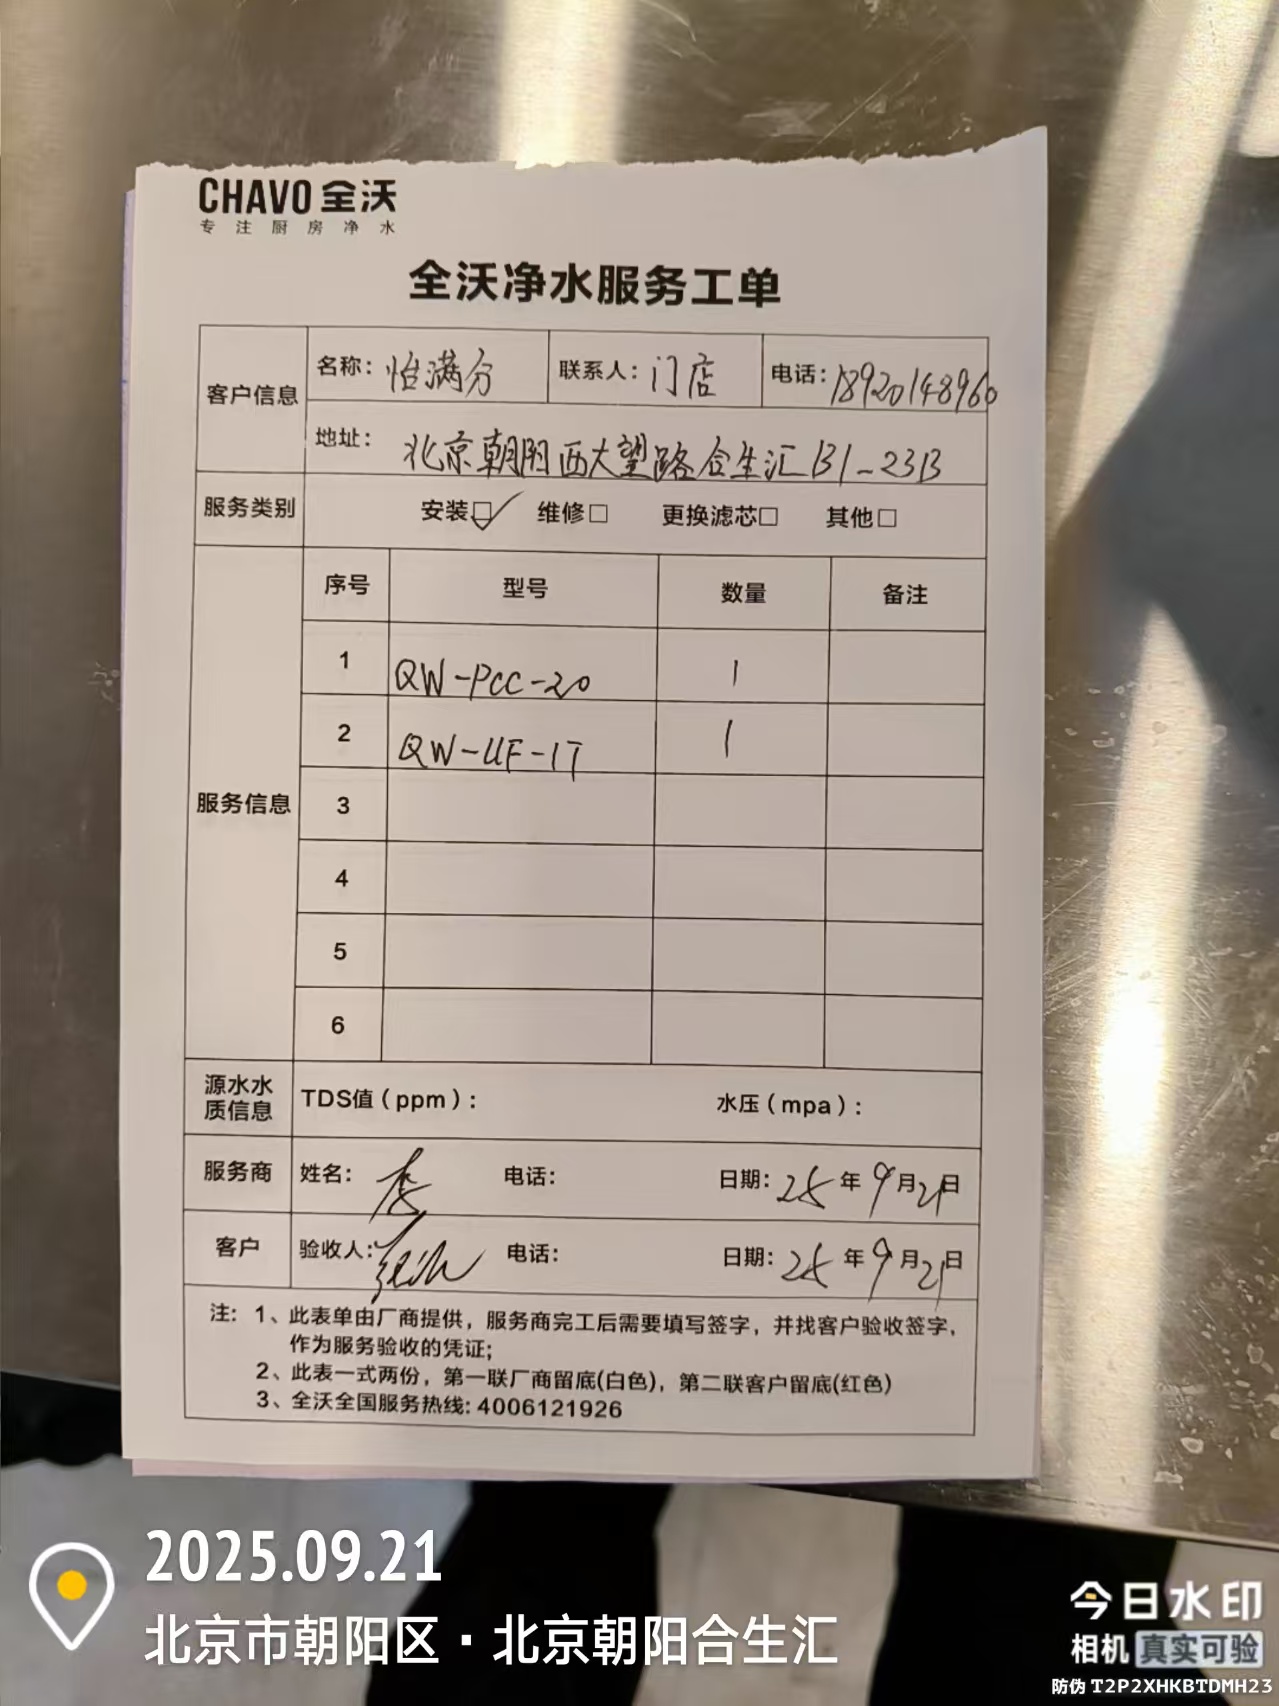 CHAVO 全沃
专注厨房净水
全沃净水服务工单
客户信息 名称：怡满分 联系人：门店 电话：18920148960
地址：北京朝阳西大望路合生汇B1-23B
服务类别 安装☑ 维修□ 更换滤芯□ 其他□
服务信息 序号 型号 数量 备注
1 QW-PCC-20 1
2 QW-UF-1T 1
3
4
5
6
源水水质信息 TDS值（ppm）： 水压（mpa）：
服务商 姓名： 电话： 日期：25年9月21日
客户 验收人： 电话： 日期：25年9月21日
注：1、此表单由厂商提供，服务商完工后需要填写签字，并找客户验收签字，
作为服务验收的凭证；
2、此表一式两份，第一联厂商留底(白色)，第二联客户留底(红色)
3、全沃全国服务热线：4006121926
2025.09.21
北京市朝阳区·北京朝阳合生汇
今日水印
相机 真实可验
防伪 T2P2XHKBTDMH23